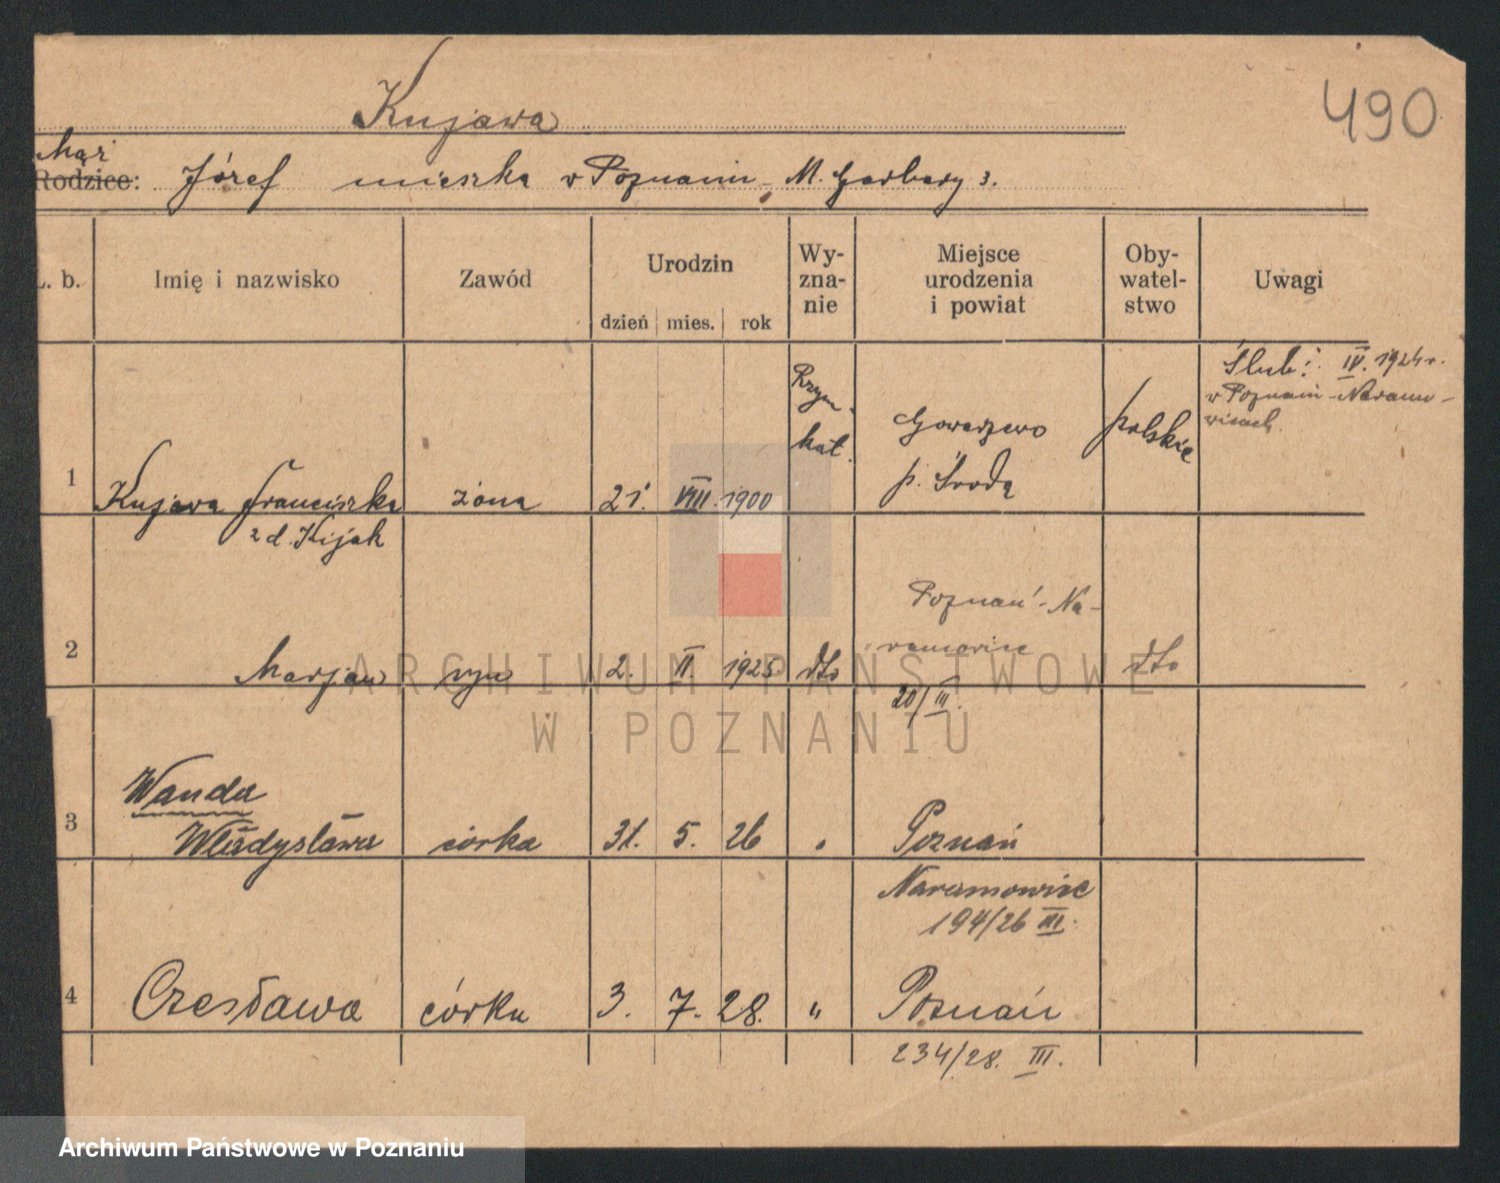 490
Kujawa
Mąż
Rodzice: Józef mieszka w Poznaniu M. Garbary 3.
L. b. Imię i nazwisko Zawód Urodzin dzień mies. rok Wy-zna-nie Miejsce urodzenia i powiat Oby-watel-stwo Uwagi
Ślub: IV. 1924 r.
w Poznań - Naramo-
wicach.
Rzym.
kat.
Gowarzewo
p. Środa
polskie
1 Kujawa Franciszka żona 21. VIII. 1900
z d. Kijak
Poznań - Na-
ramowice
2 Marjan syn 2. II. 1925 dto dto
20/III.
Wanda
3 Władysława córka 31. 5. 26 " Poznań
Naramowice
194/26 III.
4 Czesława córka 3. 7. 28. " Poznań
234/28. III.
ARCHIWUM PAŃSTWOWE
W POZNANIU
Archiwum Państwowe w Poznaniu